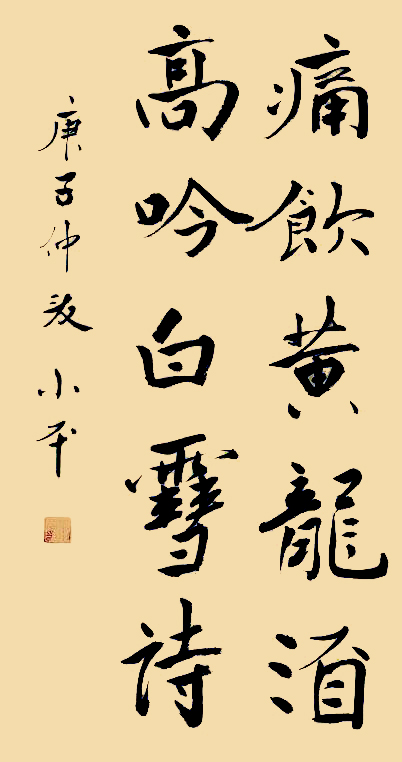 痛飲黄龍酒
高吟白雪詩
庚子仲夏小平